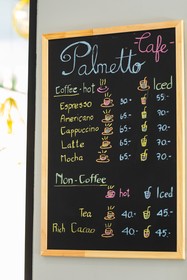 Palmetto Cafe
Coffee - hot Iced
Espresso 50.- 55.-
Americano 65.- 70.-
Cappuccino 65.- 70.-
Latte 65.- 70.-
Mocha 65.- 70.-
Non-Coffee
hot Iced
Tea 40.- 45.-
Rich Cacao 40.- 45.-